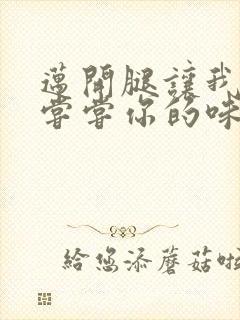 邁開腿讓我
嘗嘗你的味
給您添蘑菇啦